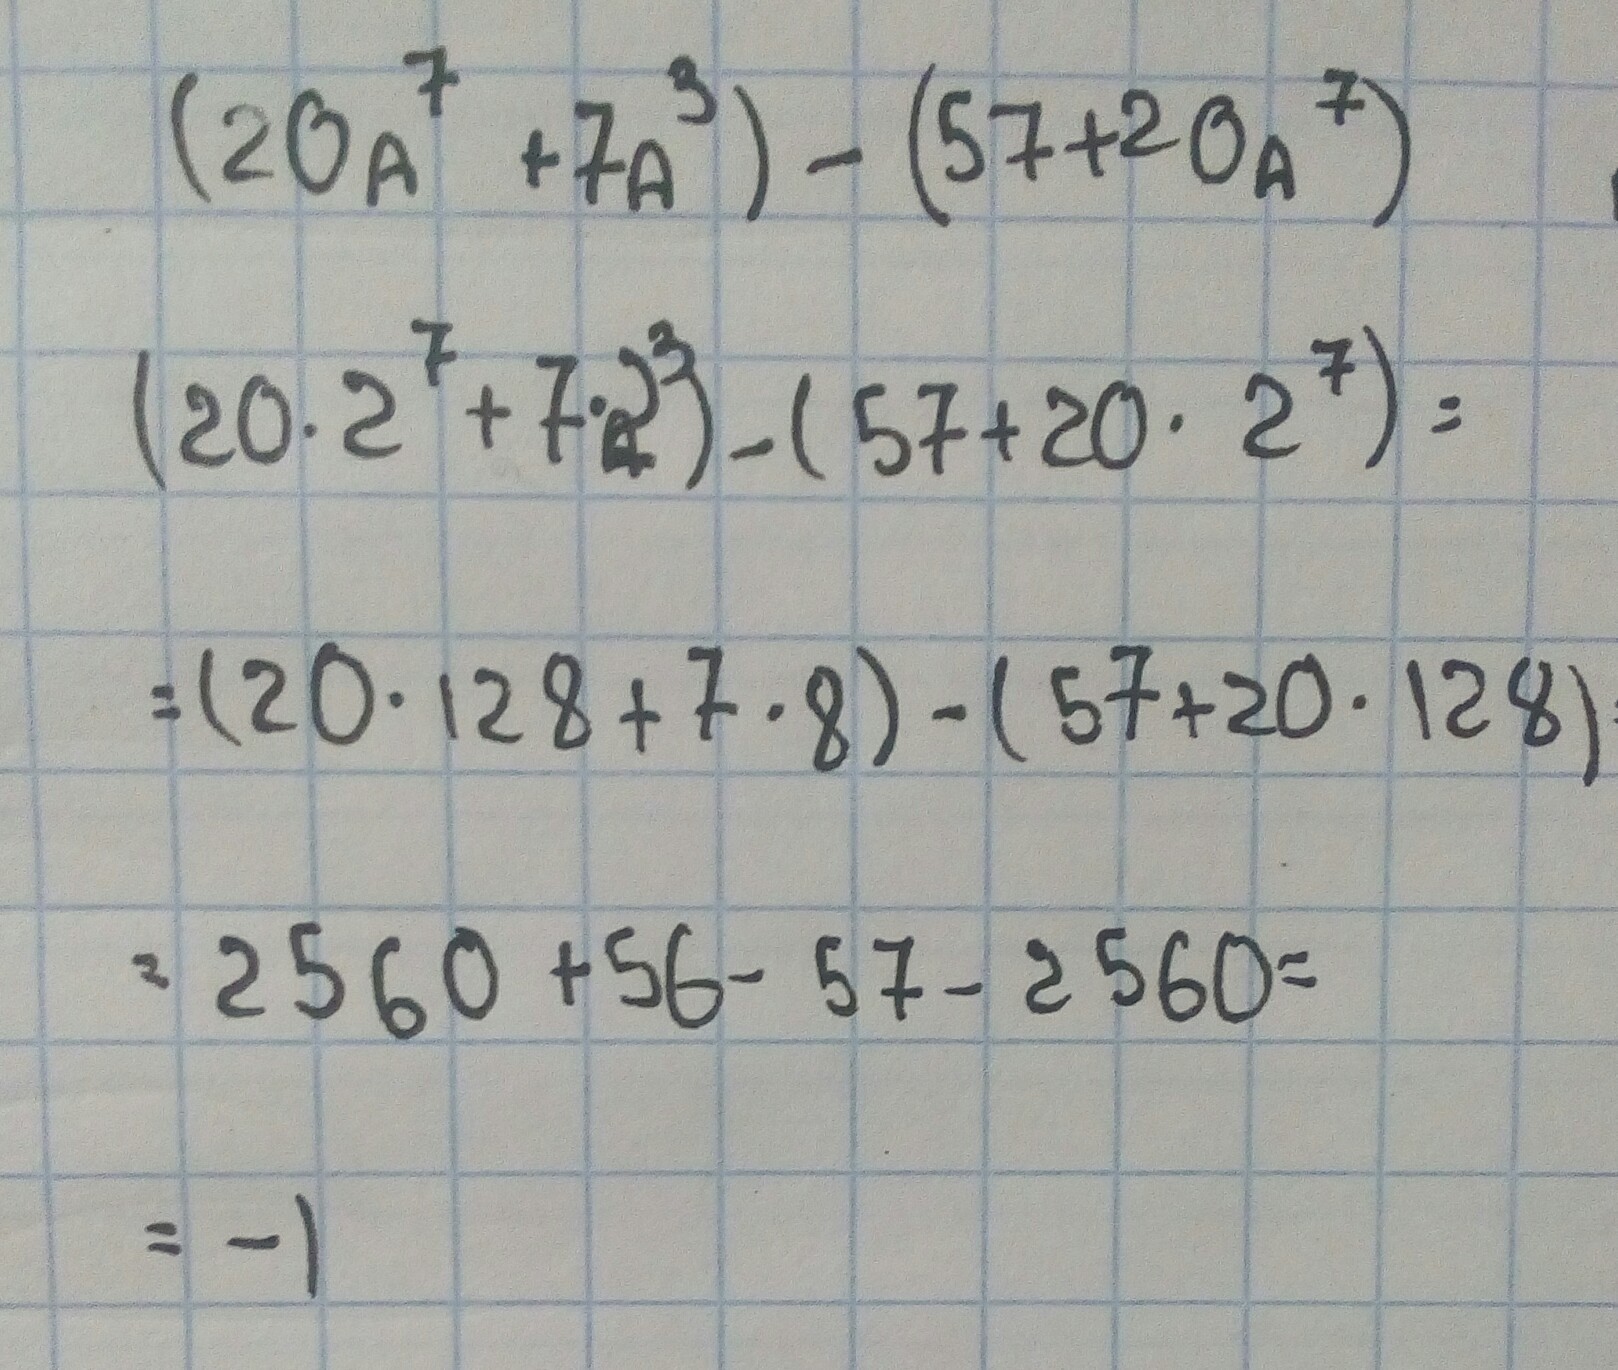 (20A⁷ + 7A³) - (57+20A⁷)
(20·2⁷ + 7·2³) - (57+20·2⁷) =
= (20·128 + 7·8) - (57+20·128) =
= 2560 + 56 - 57 - 2560 =
= -1